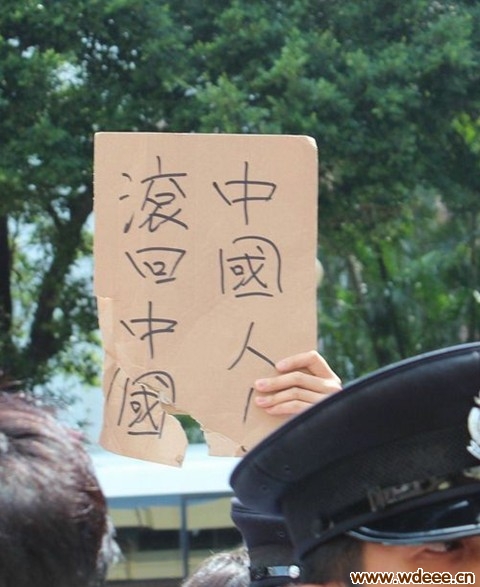 中國人
滾回中國
www.wdeee.cn